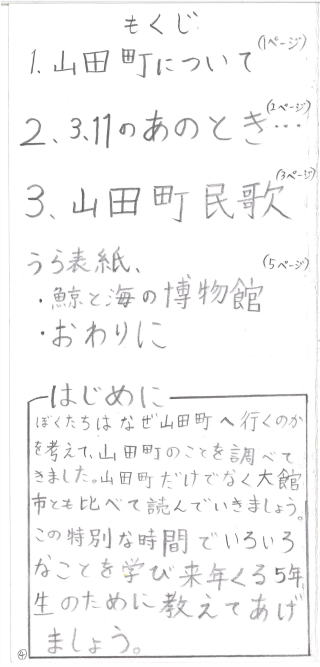 もくじ
1.山田町について (1ページ)
2、3.11のあのとき… (2ページ)
3、山田町民歌 (3ページ)
うら表紙、 (5ページ)
・鯨と海の博物館
・おわりに
はじめに
ぼくたちは なぜ山田町へ行くのか
を考えて、山田町のことを調べて
きました。山田町だけでなく大館
市とも比べて読んでいきましょう。
この特別な時間でいろいろ
なことを学び来年くる5年
生のために教えてあげ
ましょう。
④